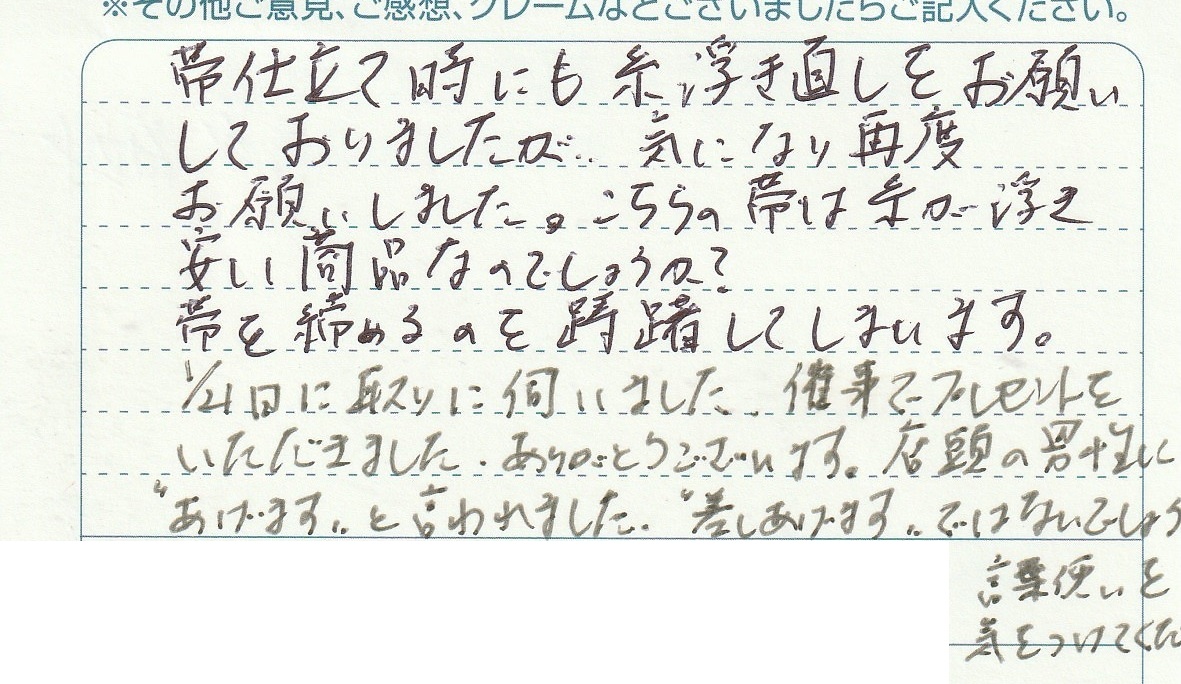 ※その他ご意見、ご感想、クレームなどございましたらご記入ください。
帯仕立て時にも糸浮き直しをお願い
しておりましたが.. 気になり再度
お願いしました。こちらの帯は糸が浮き
安い商品なのでしょうか?
帯を締めるのを躊躇してしまいます。
1/21日に取りに伺いました。催事でプレゼントを
いただきました。ありがとうございます。店頭の男性に
“あげます〟と言われました。“差しあげます〟ではないでしょう
言葉使いを
気をつけてくだ